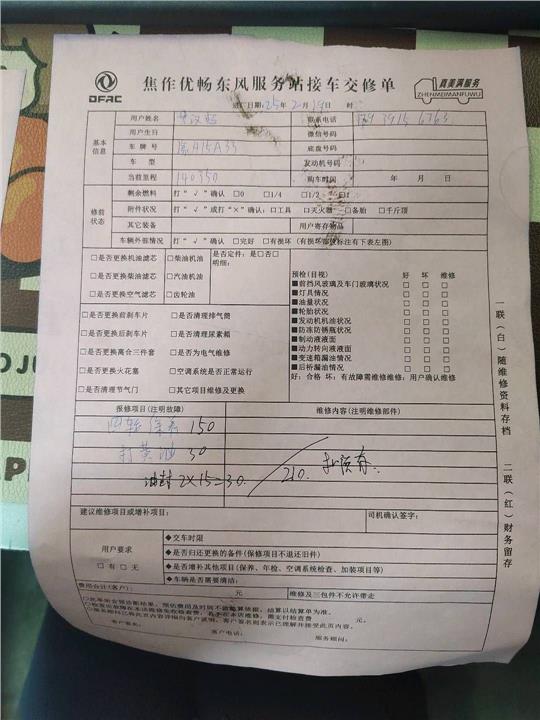 DFAC
焦作优畅东风服务站接车交修单
真美满服务
ZHENMEIMANFUWU
日期:25年2月19日 时
用户姓名 联系电话
基本信息
用户生日 微信号码
车牌号 A15A33 底盘号码
车型 发动机号码
当前里程 140350 购车时间 年 月 日
修前状态
剩余燃料 打"√"确认 □0 □1/4 □1/2 □1
附件状况 打"√"或打"×"确认:□工具 □灭火器 □备胎 □千斤顶
其它装备 用户寄存物品
车辆外部情况 打"√"确认 □完好 □有损坏(有损坏部位标注右下表左图)
□是否更换机油滤芯 □柴油机油 是否定件:是□否□
明细:
□是否更换柴油滤芯 □汽油机油
□是否更换空气滤芯 □齿轮油
预检(目视) 好 坏 维修
■前挡风玻璃及车门玻璃状况 □ □ □
■灯具情况 □ □ □
■油量状况 □ □ □
■轮胎状况 □ □ □
■发动机机油状况 □ □ □
■防冻防锈瓶状况 □ □ □
■制动液液面 □ □ □
■动力转向液液面 □ □ □
■变速箱漏油情况 □ □ □
■后桥漏油情况 □ □ □
好:合格 坏:有故障需维修维修:用户确认维修
□是否更换前刹车片 □是否清理排气筒
□是否更换后刹车片 □是否清理尿素箱
□是否更换离合三件套 □是否为电气维修
□是否更换火花塞 □空调系统是否正常运行
□是否清理节气门 □其它项目维修及更换
报修项目(注明故障) 维修内容(注明维修部件)
150
打黄油 30
油封 2×15=30. 210.
建议维修项目或增补项目: 司机确认签字:
用户要求
□有 □无
◆交车时限
◆是否归还更换的备件(保修项目不退还旧件)
◆是否增补其他项目(保养、年检、空调系统检查、加装项目等)
◆车辆是否需要清洁:
费用合计(客户): 元 维修及三包件不允许带走
客户签名: 客户电话: 服务顾问:
一联(白)随维修资料存档 二联(红)财务留存